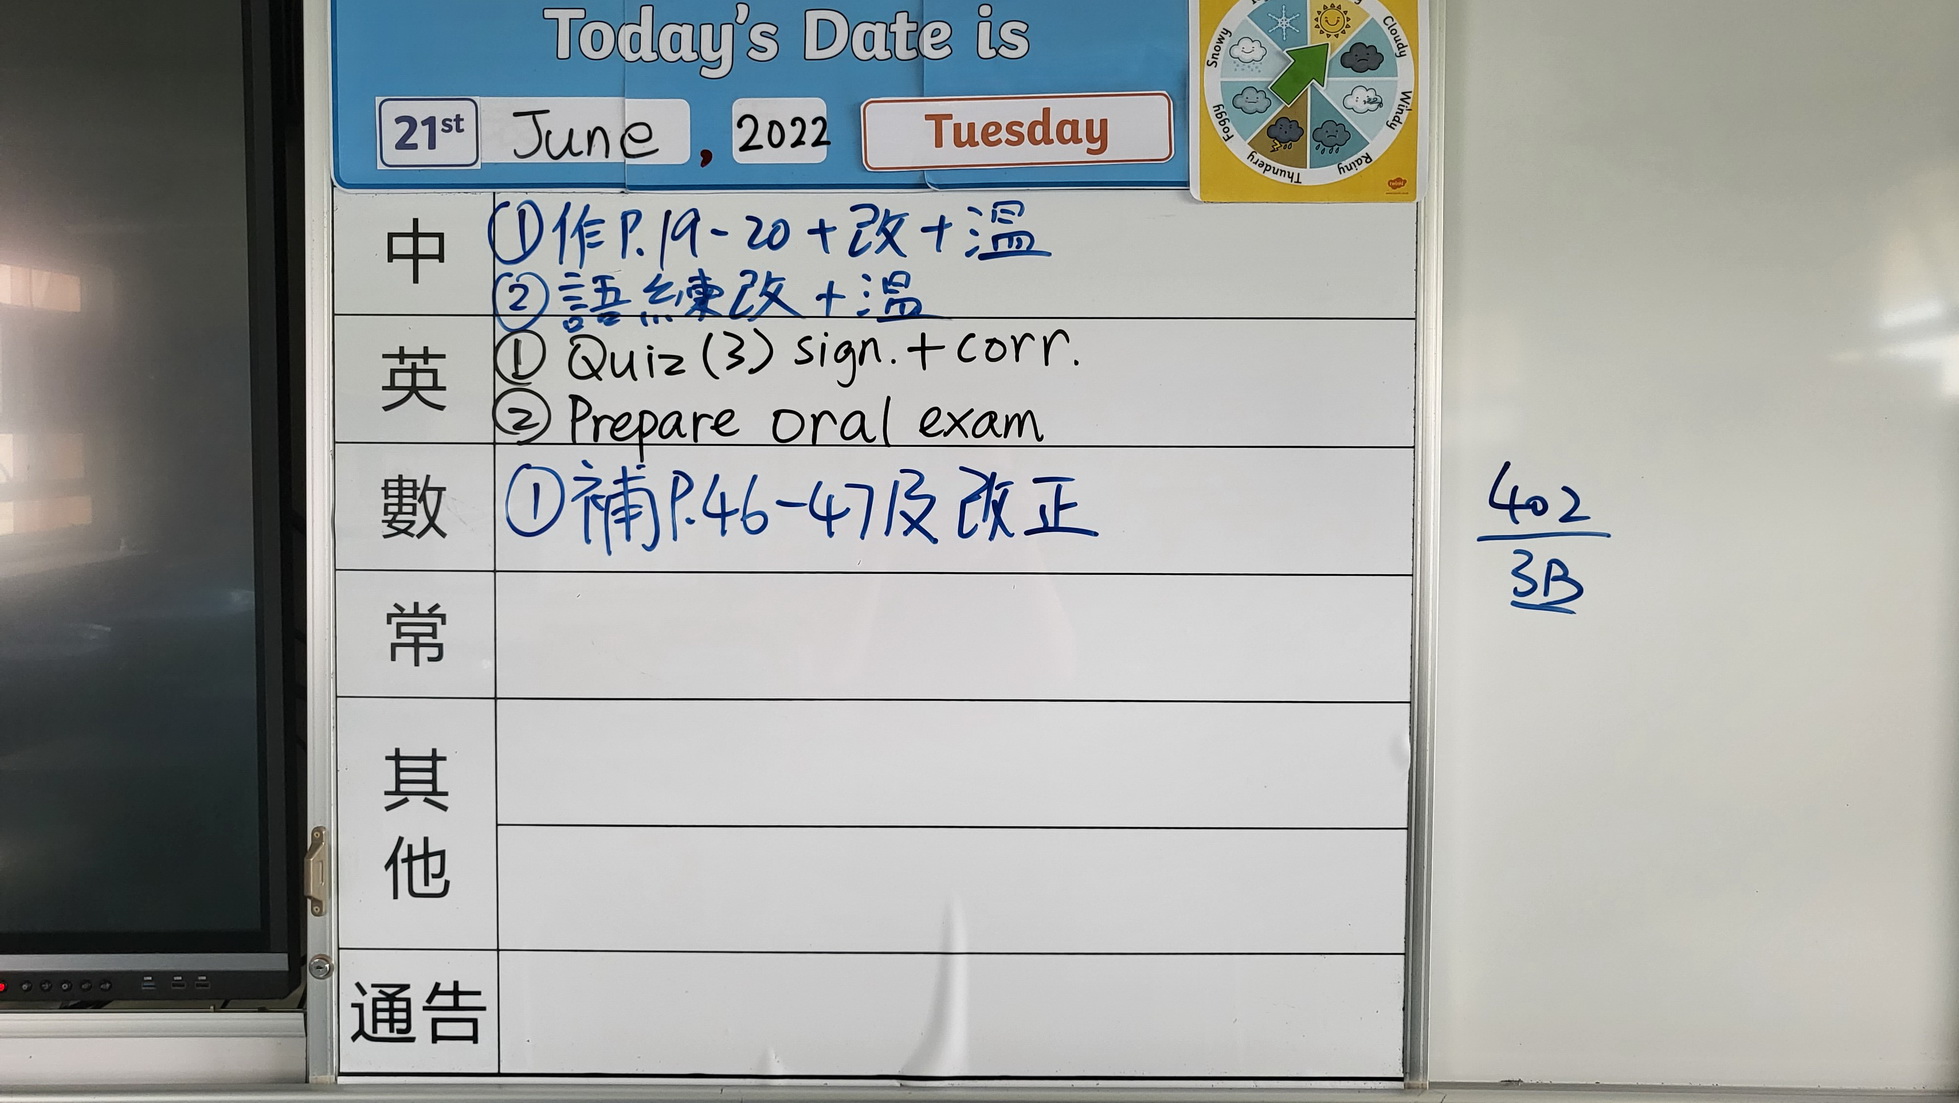 Today's Date is
21st June, 2022 Tuesday
Snowy
Cloudy
Windy
Rainy
Thundery
Foggy
中
①作P.19-20+改+溫
②語練改+溫
英
① Quiz (3) sign.+corr.
② Prepare oral exam
數
①補P.46-47及改正
常
其他
通告
402
3B